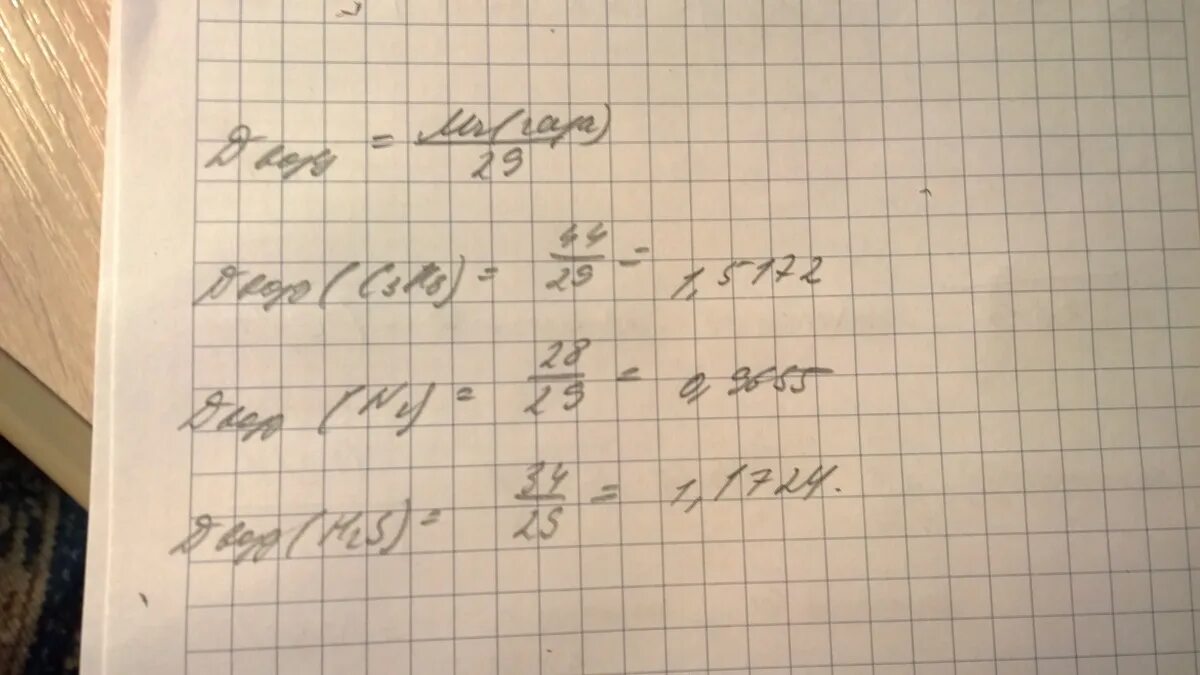 D возд = Mr(газа) / 29
D возд (C3H8) = 44/29 = 1,5172
D возд (N2) = 28/29 = 0,9655
D возд (H2S) = 34/29 = 1,1724.